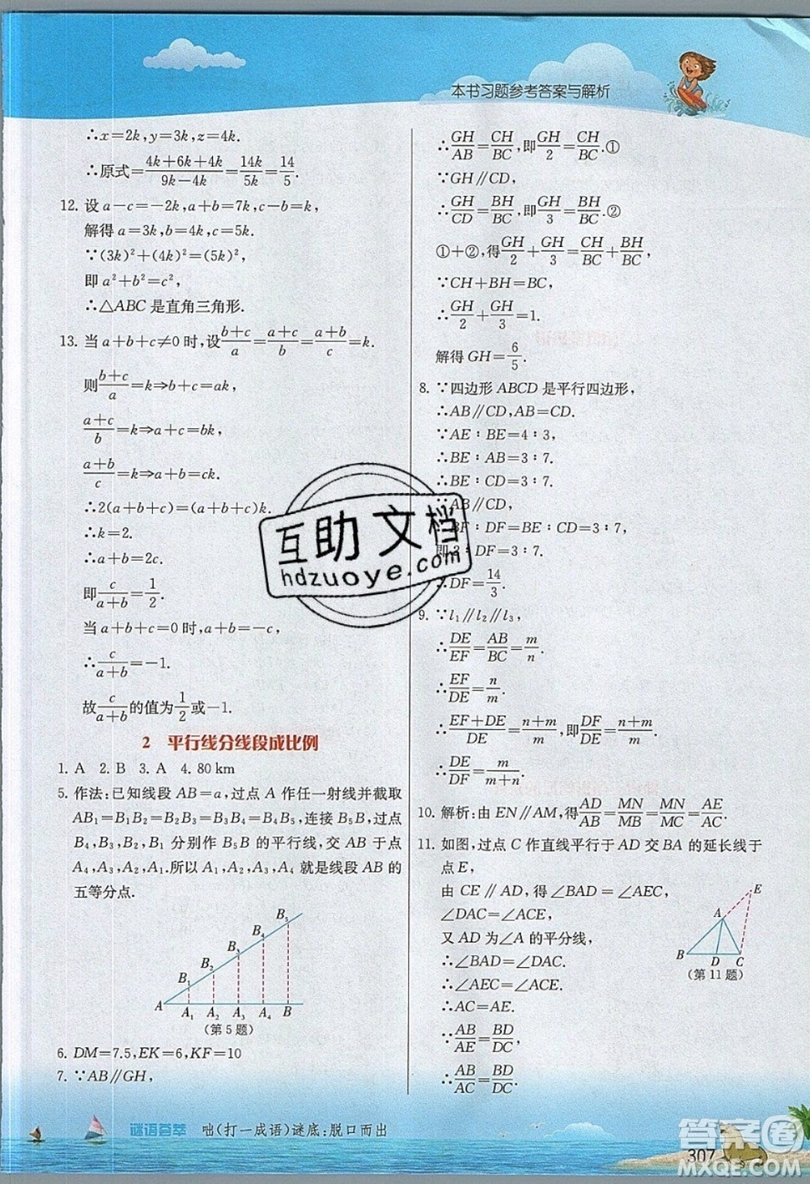 本书习题参考答案与解析
∴x=2k,y=3k,z=4k.
∴原式=\frac{4k+6k+4k}{9k-4k}=\frac{14k}{5k}=\frac{14}{5}.
12. 设 a-c=-2k,a+b=7k,c+b=9k,
解得 a=3k,b=4k,c=5k.
∵(3k)²+(4k)²=(5k)²,
即 a²+b²=c².
∴△ABC 是直角三角形.
13. 当 a+b+c≠0 时,设\frac{b+c}{a}=\frac{a+c}{b}=\frac{a+b}{c}=k.
则\frac{b+c}{a}=k⇒b+c=ak,
\frac{a+c}{b}=k⇒a+c=bk,
\frac{a+b}{c}=k⇒a+b=ck.
∴2(a+b+c)=(a+b+c)k.
∴k=2.
∴a+b=2c.
即\frac{c}{a+b}=\frac{1}{2}.
当 a+b+c=0 时,a+b=-c,
∴\frac{c}{a+b}=-1.
故\frac{c}{a+b}的值为\frac{1}{2}或-1.
2 平行线分线段成比例
1. A 2. B 3. A 4. 80 km
5. 作法:已知线段 AB=a,过点 A 作任一射线并截取
AB₁=B₁B₂=B₂B₃=B₃B₄=B₄B₅,连接 B₅B,过点
B₄,B₃,B₂,B₁ 分别作 B₅B 的平行线,交 AB 于点
A₄,A₃,A₂,A₁.所以 A₁,A₂,A₃,A₄ 就是线段 AB 的
五等分点.
B₅
B₄
B₃
B₂
B₁
A A₁ A₂ A₃ A₄ B
(第 5 题)
6. DM=7.5,EK=6,KF=10
7. ∵AB∥GH,
∴\frac{GH}{AB}=\frac{CH}{BC},即\frac{GH}{2}=\frac{CH}{BC}.①
∵GH∥CD,
∴\frac{GH}{CD}=\frac{BH}{BC},即\frac{GH}{3}=\frac{BH}{BC}.②
①+②,得\frac{GH}{2}+\frac{GH}{3}=\frac{CH}{BC}+\frac{BH}{BC},
∵CH+BH=BC,
∴\frac{GH}{2}+\frac{GH}{3}=1.
解得 GH=\frac{6}{5}.
8. ∵四边形 ABCD 是平行四边形,
∴AB∥CD,AB=CD.
∵AE∶BE=4∶3,
∴BE∶AB=3∶7.
∴BE∶CD=3∶7.
∵AB∥CD,
∴BF∶DF=BE∶CD=3∶7.
即 2∶DF=3∶7.
∴DF=\frac{14}{3}.
9. ∵l₁∥l₂∥l₃,
∴\frac{DE}{EF}=\frac{AB}{BC}=\frac{m}{n}.
∴\frac{EF}{DE}=\frac{n}{m}.
∴\frac{EF+DE}{DE}=\frac{n+m}{m},即\frac{DF}{DE}=\frac{n+m}{m}.
∴\frac{DE}{DF}=\frac{m}{m+n}.
10. 解析:由 EN∥AM,得\frac{AD}{AB}=\frac{MN}{MB}=\frac{MN}{MC}=\frac{AE}{AC}.
11. 如图,过点 C 作直线平行于 AD 交 BA 的延长线于
点 E,
由 CE∥AD,得∠BAD=∠AEC,
∠DAC=∠ACE,
又 AD 为∠A 的平分线,
∴∠BAD=∠DAC,
∴∠AEC=∠ACE.
∴AC=AE.
∵\frac{AB}{AE}=\frac{BD}{DC},
∴\frac{AB}{AC}=\frac{BD}{DC}.
E
A
B D C
(第 11 题)
互助文档
hdzuoye.com
谜语荟萃 咄(打一成语)谜底:脱口而出
307
答案圈
MXQE.COM